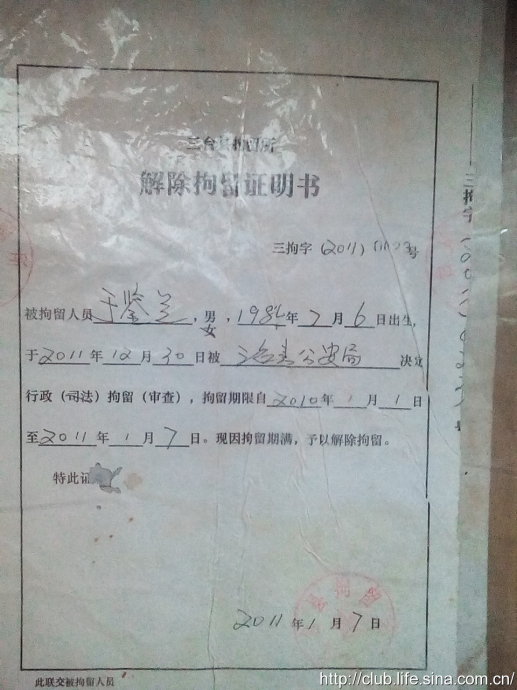 三台县拘留所
解除拘留证明书
三拘字（2011）号
被拘留人员于鉴兰，男女，198年7月6日出生，
于2011年12月30日被三台县公安局决定
行政（司法）拘留（审查），拘留期限自2010年1月1日
至2011年1月7日。现因拘留期满，予以解除拘留。
特此证
2011年1月7日
此联交被拘留人员
三拘字
http://club.life.sina.com.cn/